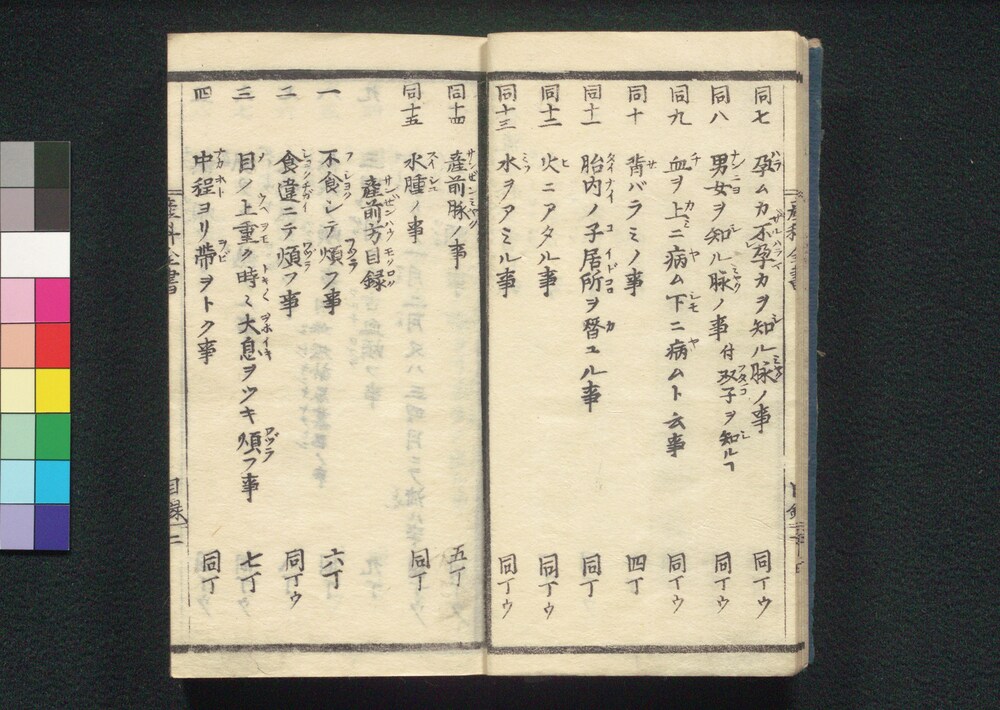 同七 孕ムカ不孕カヲ知ル脉ノ事 同丁ウ
同八 男女ヲ知ル脉ノ事 付双子ヲ知ルヿ 同丁ウ
同九 血ヲ上ニ病ム下ニ病ムト云事 同丁ウ
同十 背バラミノ事 四丁
同十一 胎内ノ子居所ヲ替ユル事 同丁
同十二 火ニアタル事 同丁ウ
同十三 水ヲアミル事 同丁ウ
同十四 産前脉ノ事 五丁
同十五 水腫ノ事 同丁
産前方目録
一 不食シテ煩フ事 六丁
二 食違ニテ煩フ事 同丁ウ
三 目ノ上重ク時〻大息ヲツキ煩フ事 七丁
四 中程ヨリ帶ヲトク事 同丁
産科全書 目録 二